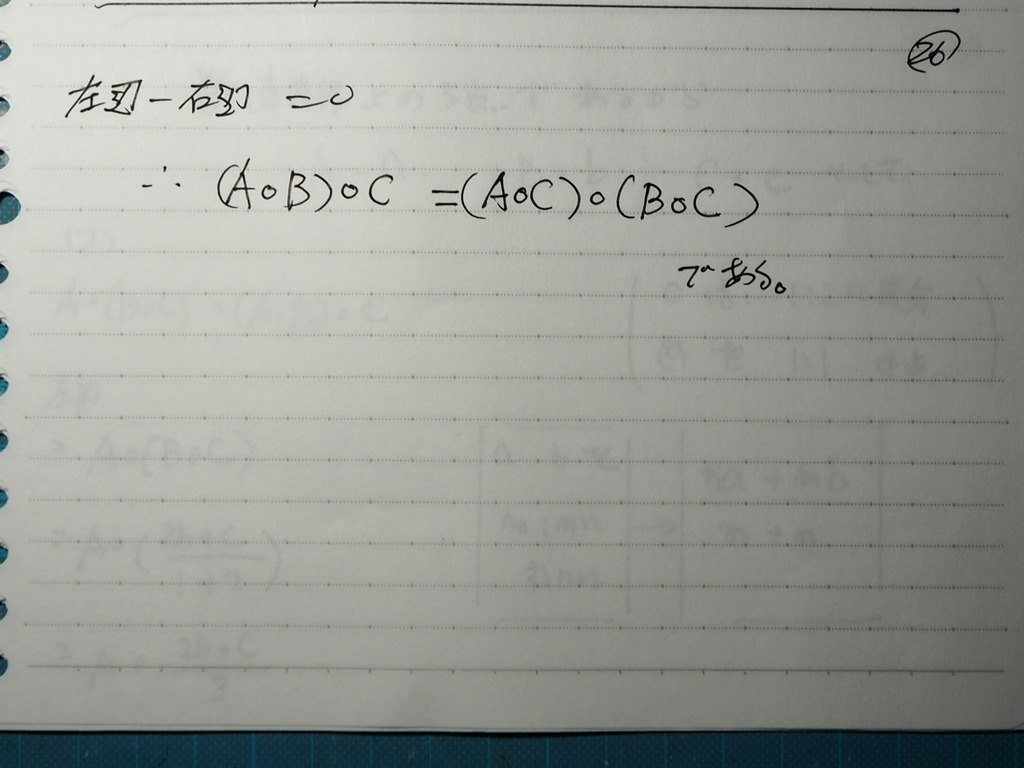 ㉖
左辺 − 右辺 = 0
∴ (A∘B)∘C = (A∘C)∘(B∘C)
である。